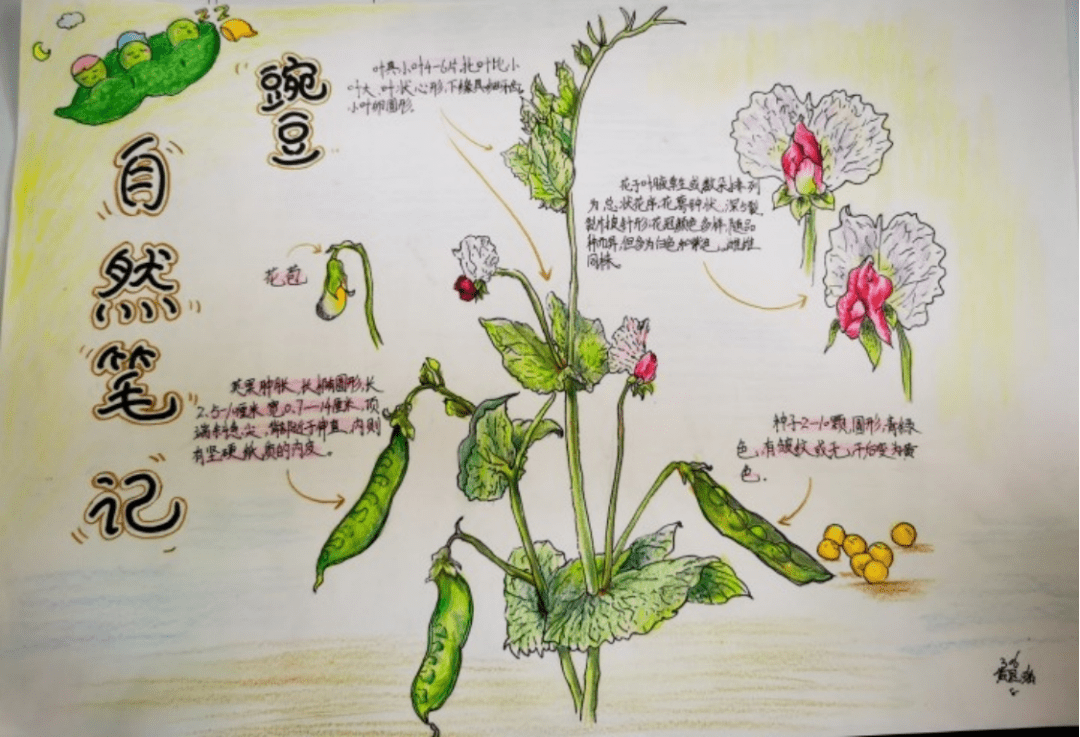 自然笔记
豌豆
叶具小叶4-6片,托叶比小
叶大,叶状心形,下缘具细牙齿,
小叶卵圆形。
花于叶腋单生或数朵排列
为总状花序,花萼钟状,深5裂
裂片披针形;花冠颜色多样,随品
种而异,但多为白色和紫色,雌雄
同株。
花苞
荚果肿胀,长椭圆形,长
2.5-10厘米,宽0.7—14厘米,顶
端斜急尖,背部近于伸直,内侧
有坚硬纸质的内皮。
种子2-10颗,圆形,青绿
色,有皱纹或无,干后变为黄
色.
zz